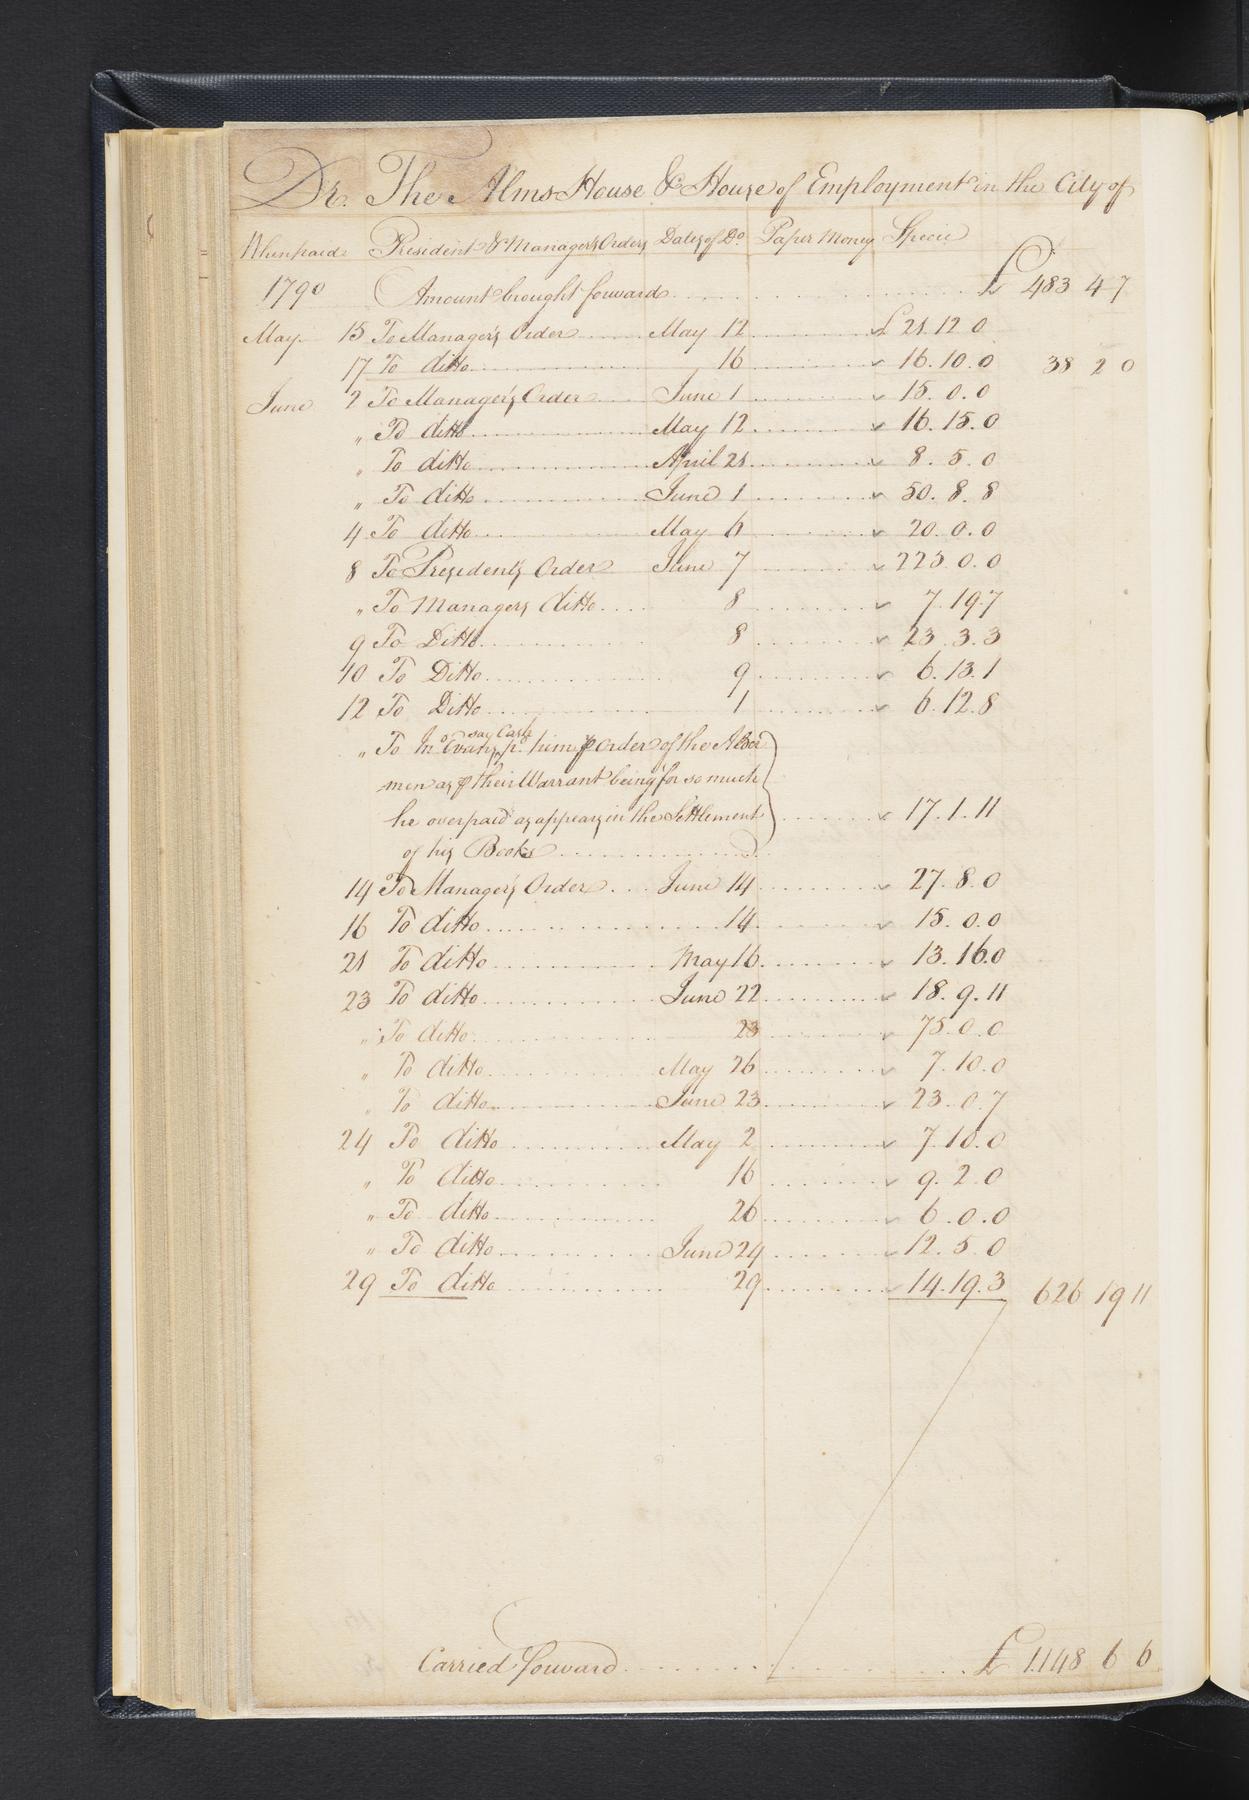 Dr. The Alms House & House of Employment in the City of
When paid President & Managers Orders Dates of Do. Paper Money Specie
1790 Amount brought forward £ 483 4 7
May 15 To Manager's Order May 12 £ 21.12.0
17 To ditto 16 16.10.0 38 2 0
June 2 To Manager's Order June 1 15.0.0
" To ditto May 12 16.15.0
" To ditto April 21 8.5.0
" To ditto June 1 50.8.8
4 To ditto May 6 20.0.0
8 To President's Order June 7 225.0.0
" To Managers ditto 8 7.19.7
9 To Ditto 8 23.3.3
10 To Ditto 9 6.13.1
12 To Ditto 1 6.12.8
say Cash
" To Mo. Evans pd. him ⅌ order of the Alder
men as ⅌ their Warrant being for so much
he overpaid as appears in the Settlement 17.1.11
of his Books
14 To Manager's Order June 14 27.8.0
16 To ditto 14 15.0.0
21 To ditto May 16 13.16.0
23 To ditto June 22 18.9.11
" To ditto 23 75.0.0
" To ditto May 26 7.10.0
" To ditto June 23 23.0.7
24 To ditto May 2 7.10.0
" To ditto 16 9.2.0
" To ditto 26 6.0.0
" To ditto June 24 12.5.0
29 To ditto 29 14.19.3 626 19 11
Carried forward £ 1148 6 6